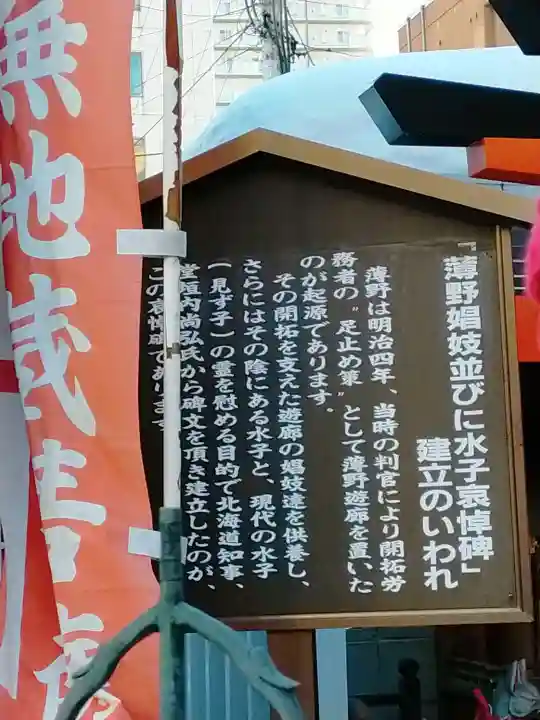 『薄野娼妓並びに水子哀悼碑』
建立のいわれ
薄野は明治四年、当時の判官により開拓労
務者の〝足止め策〟として薄野遊廓を置いた
のが起源であります。
その開拓を支えた遊廓の娼妓達を供養し、
さらにはその陰にある水子と、現代の水子
(一見ず子)の霊を慰める目的で北海道知事、
堂垣内尚弘氏から碑文を頂き建立したのが、
この哀悼碑であります
無地蔵